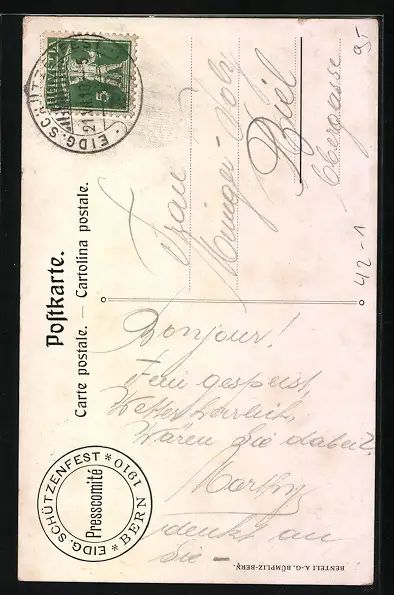 Postkarte.
Carte postale. — Cartolina postale.
* EIDG. SCHÜTZENFEST * BERN 1910
Presscomité
EIDG. SCHÜTZ
21
5
Bonjour!
Fein gespeist,
Wetter herrlich,
Wären Sie dabei?
denkt an
Sie —
Frau
Biel
Obergasse
95
42-1
BENTELI A.-G. BÜMPLIZ-BERN.